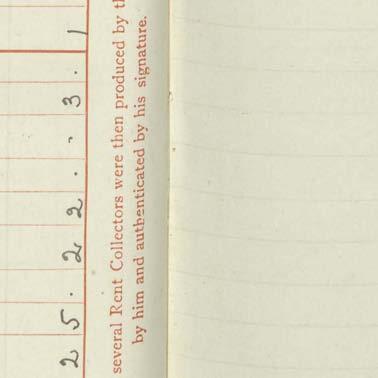 2 5 . 2 2 . - . 3 . 1
several Rent Collectors were then produced by
by him and authenticated by his signature.